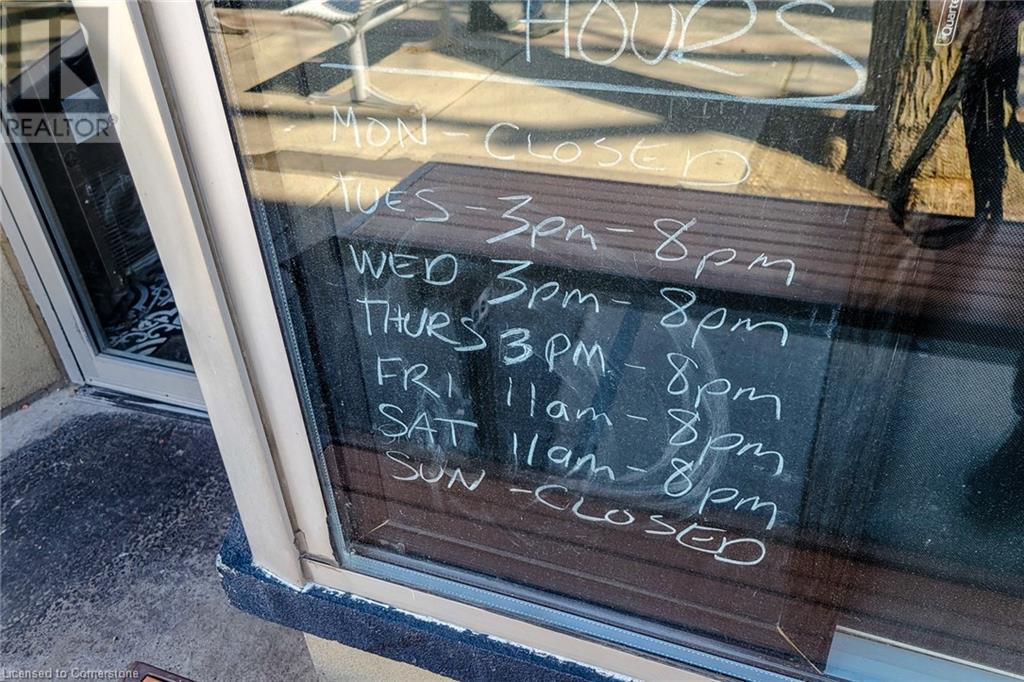 HOURS
MON - CLOSED
TUES - 3pm - 8pm
WED 3pm - 8pm
THURS 3PM - 8pm
FRI 11am - 8pm
SAT 11am - 8pm
SUN - CLOSED
REALTOR®
Licensed to Cornerstone